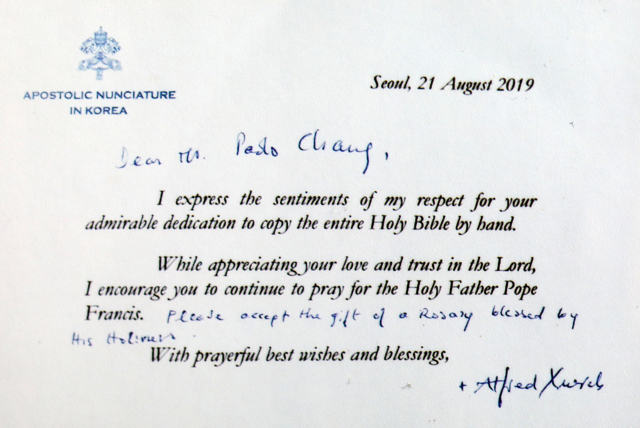 APOSTOLIC NUNCIATURE
IN KOREA
Seoul, 21 August 2019
Dear Mr. Paolo Chang,
I express the sentiments of my respect for your
admirable dedication to copy the entire Holy Bible by hand.
While appreciating your love and trust in the Lord,
I encourage you to continue to pray for the Holy Father Pope
Francis. Please accept the gift of a Rosary blessed by
His Holiness.
With prayerful best wishes and blessings,
+ Alfred Xuereb